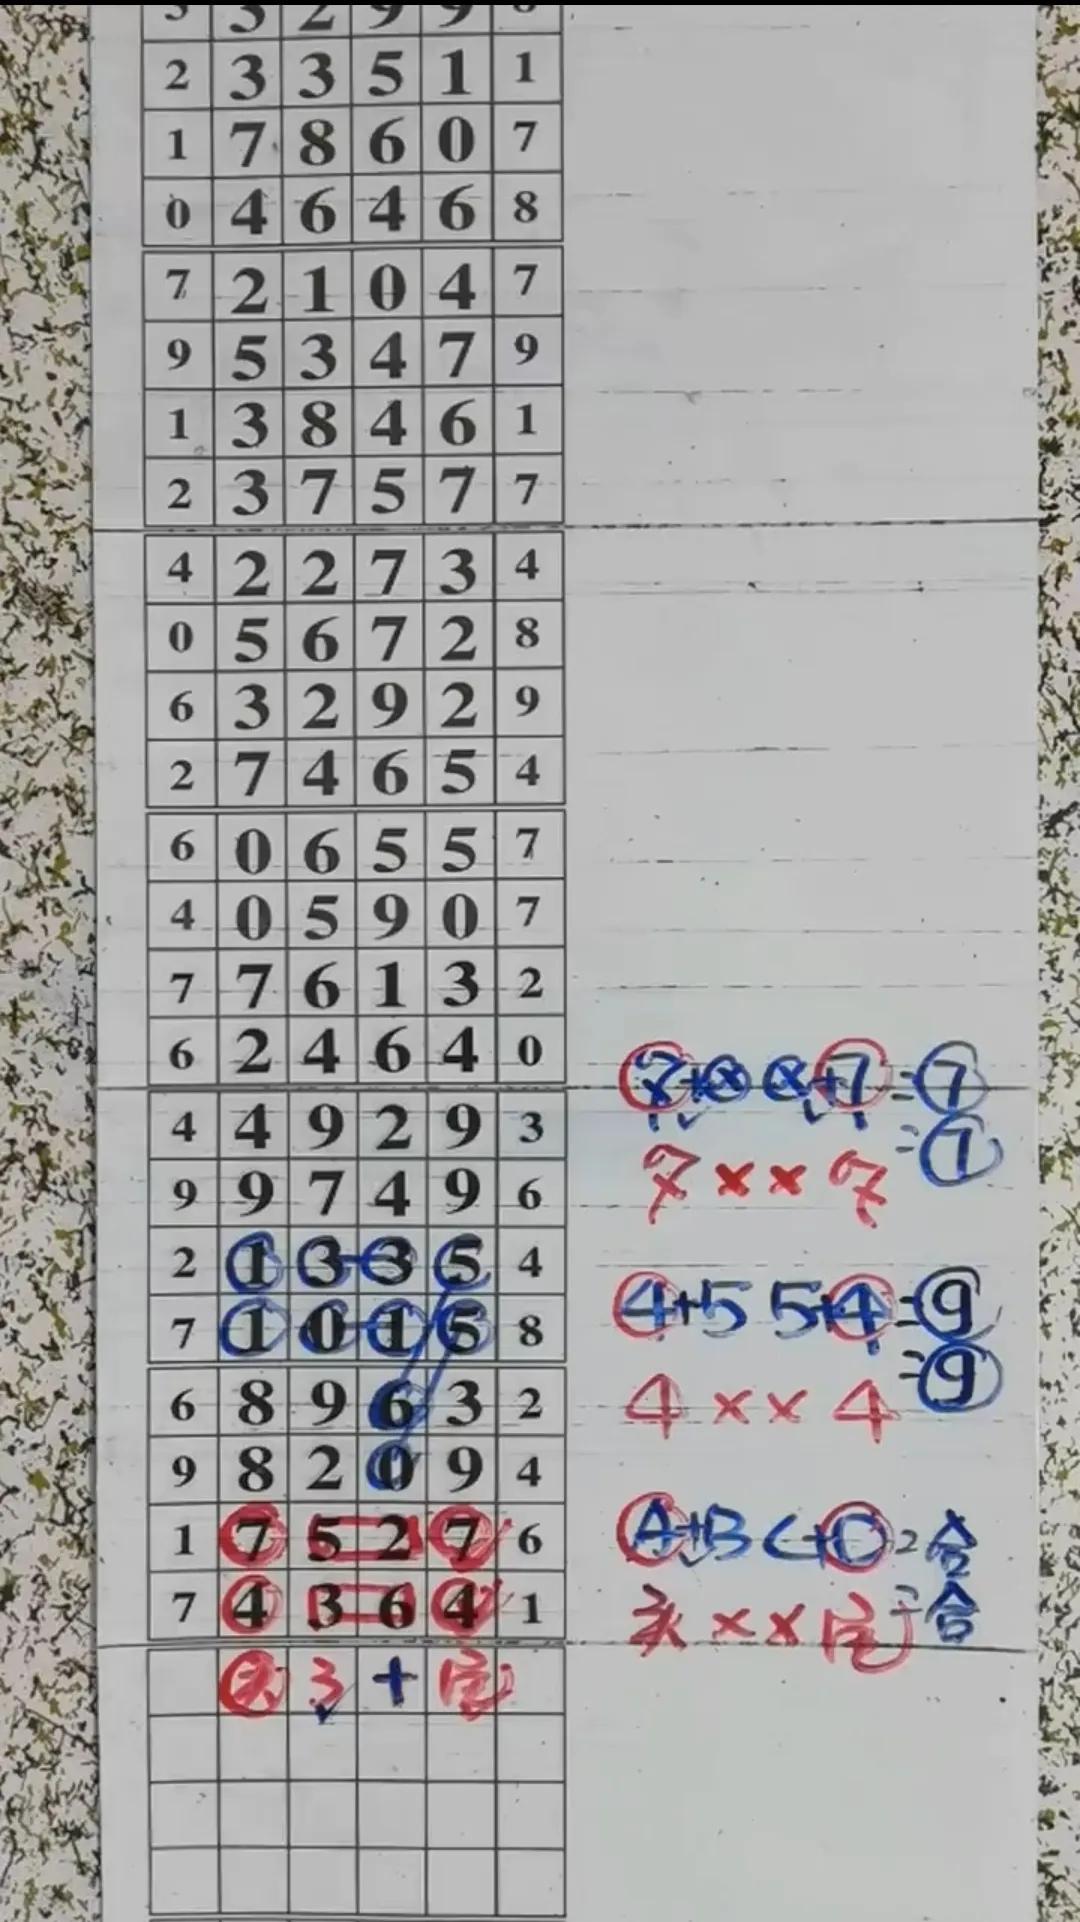 2 3 3 5 1 1
1 7 8 6 0 7
0 4 6 4 6 8
7 2 1 0 4 7
9 5 3 4 7 9
1 3 8 4 6 1
2 3 7 5 7 7
4 2 2 7 3 4
0 5 6 7 2 8
6 3 2 9 2 9
2 7 4 6 5 4
6 0 6 5 5 7
4 0 5 9 0 7
7 7 6 1 3 2
6 2 4 6 4 0
4 4 9 2 9 3
9 9 7 4 9 6
2 1 3 3 5 4
7 1 0 1 5 8
6 8 9 6 3 2
9 8 2 0 9 4
1 7 5 2 7 6
7 4 3 6 4 1
头 3 +
=7
=7
7 x x 7
4+5 5+4 =9
=9
4 x x 4
A+B C+D = 合
= 合
头 x x